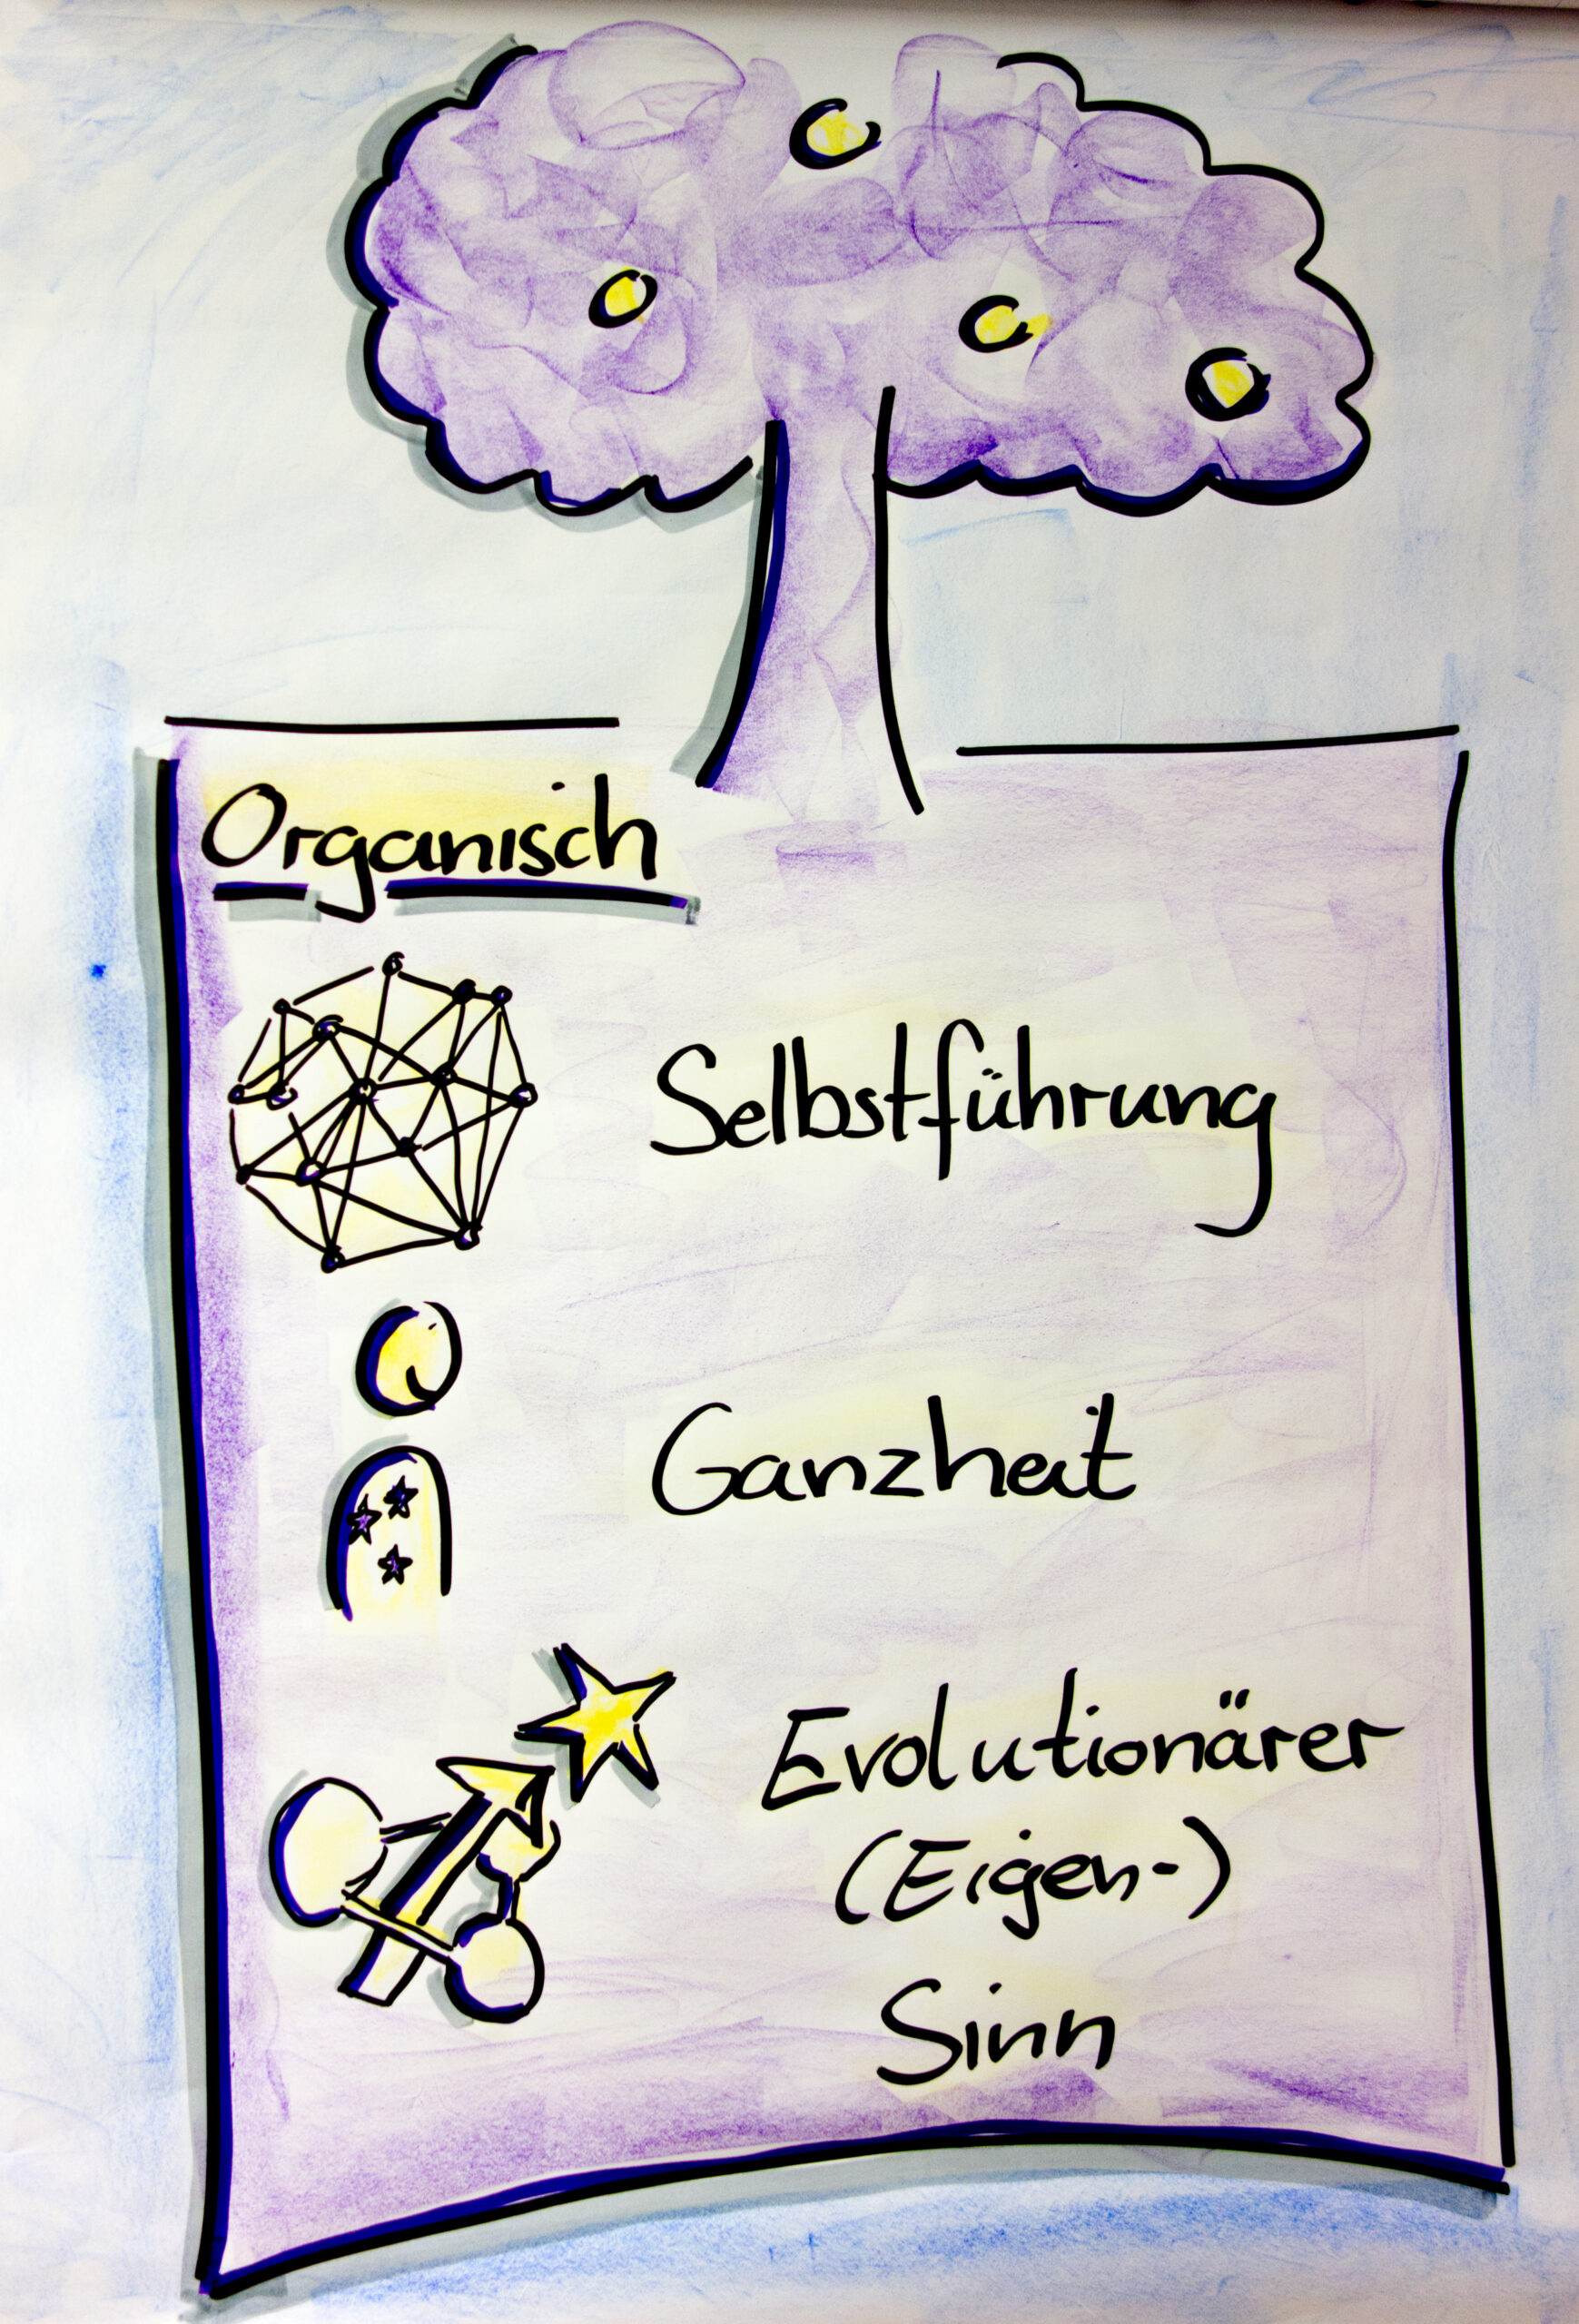 Organisch
Selbstführung
Ganzheit
Evolutionärer
(Eigen-)
Sinn